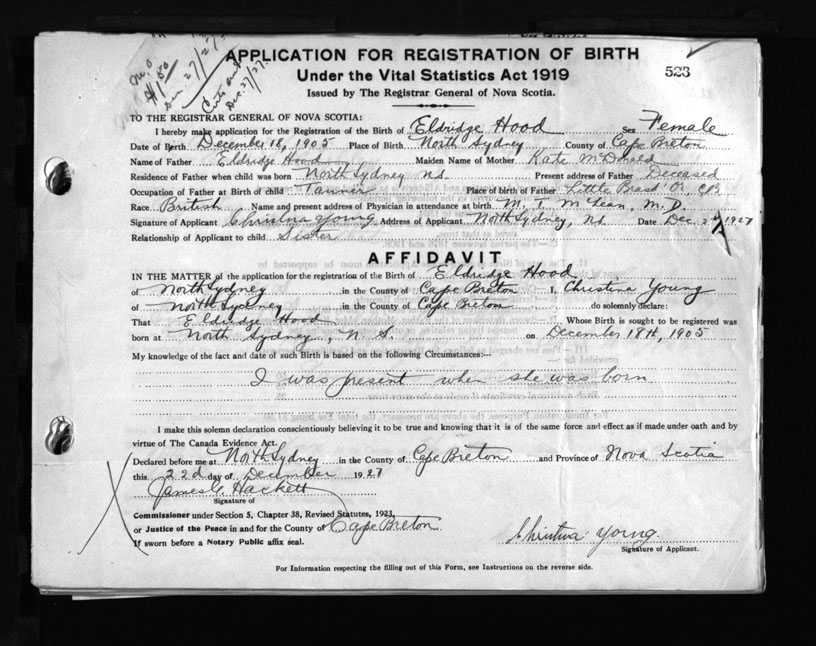 Dec 27/27
$1.00
Dec. 27/27.
APPLICATION FOR REGISTRATION OF BIRTH
Under the Vital Statistics Act 1919
523
Issued by The Registrar General of Nova Scotia.
TO THE REGISTRAR GENERAL OF NOVA SCOTIA:
I hereby make application for the Registration of the Birth of Eldridge Hood Sex Female
Date of Birth December 18, 1905 Place of Birth North Sydney County of Cape Breton
Name of Father Eldridge Hood Maiden Name of Mother Kate McDonald
Residence of Father when child was born North Sydney N.S. Present address of Father Deceased
Occupation of Father at Birth of child Tanner Place of birth of Father Little Bras d'Or, CB
Race British Name and present address of Physician in attendance at birth M. T. McLean, M.D.
Signature of Applicant Christina Young Address of Applicant North Sydney, N.S. Date Dec. 1927
Relationship of Applicant to child Sister
AFFIDAVIT
IN THE MATTER of the application for the registration of the Birth of Eldridge Hood
of North Sydney in the County of Cape Breton I, Christina Young
of North Sydney in the County of Cape Breton do solemnly declare:
That Eldridge Hood Whose Birth is sought to be registered was
born at North Sydney, N. S. on December 18th, 1905
My knowledge of the fact and date of such Birth is based on the following Circumstances:—
I was present when she was born
I make this solemn declaration conscientiously believing it to be true and knowing that it is of the same force and effect as if made under oath and by
virtue of The Canada Evidence Act.
Declared before me at North Sydney in the County of Cape Breton and Province of Nova Scotia
this 22d day of December 1927
James Hackett
Signature of
Commissioner under Section 5, Chapter 38, Revised Statutes, 1923,
or Justice of the Peace in and for the County of Cape Breton
If sworn before a Notary Public affix seal.
Christina Young.
Signature of Applicant.
For Information respecting the filling out of this Form, see Instructions on the reverse side.